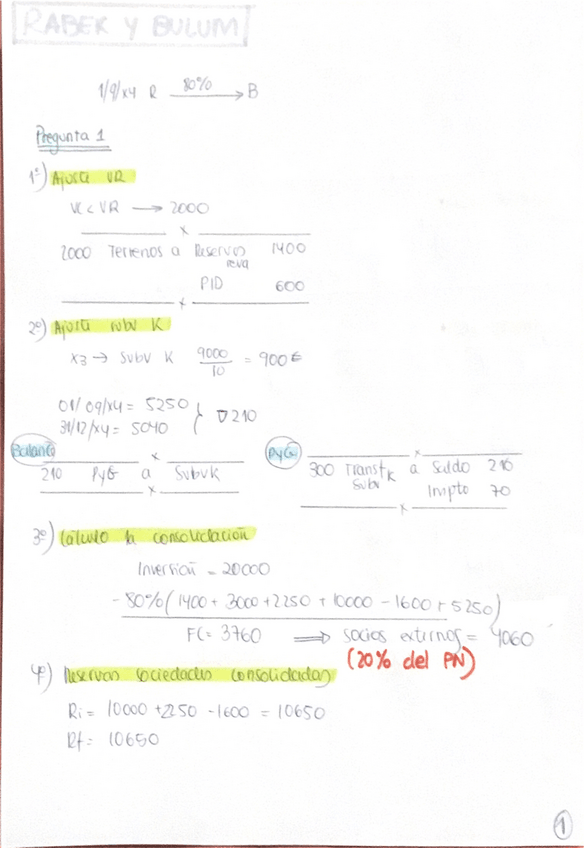 RABEK Y BULUM
1/9/x4 R 80% → B
Pregunta 1
1º) Ajuste VR
VC < VR → 2000
x
2000 Terrenos a Reservas reva 1400
PID 600
x
2º) Ajuste subv K
x3 → Subv K 9000/10 = 900€
01/09/x4 = 5250
31/12/x4 = 5040 } ∇210
Balance
x
210 PyG a Subv K
x
PyG
x
300 Transf Subv K a Saldo 210
Impto 70
x
3º) Cálculo la consolidación
Inversión = 20000
-80% (1400 + 3000 + 2250 + 10000 - 1600 + 5250)
FC = 3760 ⇒ socios externos = 4060
(20% del PN)
4º) Reservas sociedades consolidadas
Ri = 10000 + 2250 - 1600 = 10650
Rf = 10650
1